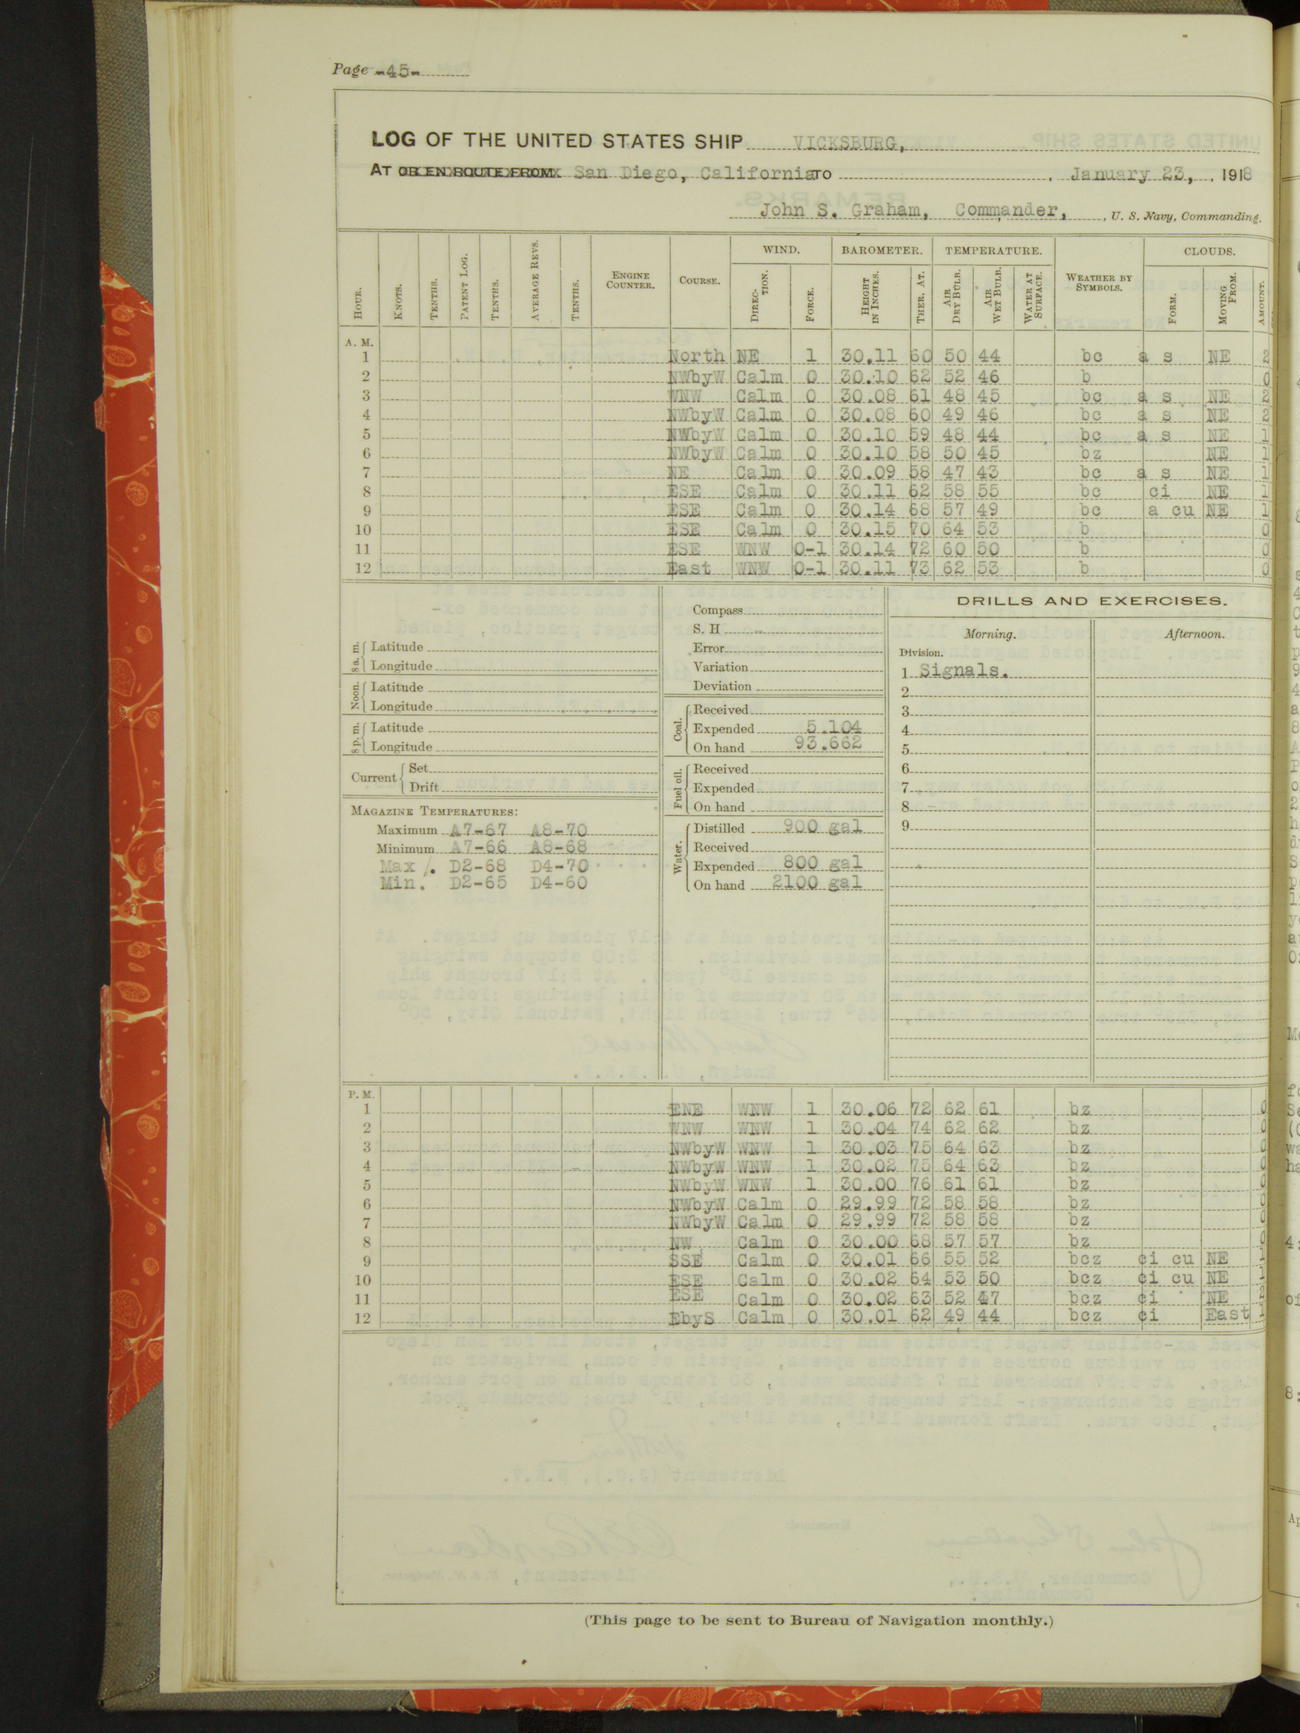 Page -45-
LOG OF THE UNITED STATES SHIP VICKSBURG,
AT OR EN ROUTE FROM San Diego, California TO , January 23, , 1918
John S. Graham, Commander, , U. S. Navy, Commanding.
HOUR. KNOTS. TENTHS. PATENT LOG. TENTHS. AVERAGE REVS. TENTHS. ENGINE COUNTER. COURSE. WIND. BAROMETER. TEMPERATURE. WEATHER BY SYMBOLS. CLOUDS.
DIRECTION. FORCE. HEIGHT IN INCHES. THER. AT. AIR DRY BULB. AIR WET BULB. WATER AT SURFACE. FORM. MOVING FROM. AMOUNT.
A. M.
1 North NE 1 30.11 60 50 44 bc a s NE 2
2 NWbyW Calm 0 30.10 62 52 46 b 0
3 WNW Calm 0 30.08 61 48 45 bc a s NE 2
4 NWbyW Calm 0 30.08 60 49 46 bc a s NE 2
5 NWbyW Calm 0 30.10 59 48 44 bc a s NE 1
6 NWbyW Calm 0 30.10 58 50 45 bz NE 1
7 NE Calm 0 30.09 58 47 43 bc a s NE 1
8 ESE Calm 0 30.11 62 58 55 bc ci NE 1
9 ESE Calm 0 30.14 68 57 49 bc a cu NE 1
10 ESE Calm 0 30.15 70 64 53 b 0
11 ESE WNW 0-1 30.14 72 60 50 b 0
12 East WNW 0-1 30.11 73 62 53 b 0
8 a.m. Latitude
Longitude
Noon. Latitude
Longitude
8 p.m. Latitude
Longitude
Current Set
Drift
MAGAZINE TEMPERATURES:
Maximum A7-67 A8-70
Minimum A7-66 A8-68
Max /. D2-68 D4-70
Min. D2-65 D4-60
Compass
S. H
Error
Variation
Deviation
Coal. Received
Expended 5.104
On hand 93.662
Fuel oil. Received
Expended
On hand
Water. Distilled 900 gal
Received
Expended 800 gal
On hand 2100 gal
DRILLS AND EXERCISES.
Morning. Afternoon.
Division.
1 Signals.
2
3
4
5
6
7
8
9
P. M.
1 ENE WNW 1 30.06 72 62 61 bz 0
2 WNW WNW 1 30.04 74 62 62 bz 0
3 NWbyW WNW 1 30.03 75 64 63 bz 0
4 NWbyW WNW 1 30.02 75 64 63 bz 0
5 NWbyW WNW 1 30.00 76 61 61 bz 0
6 NWbyW Calm 0 29.99 72 58 58 bz 0
7 NWbyW Calm 0 29.99 72 58 58 bz 0
8 NW Calm 0 30.00 68 57 57 bz 0
9 SSE Calm 0 30.01 66 55 52 bcz ci cu NE 1
10 ESE Calm 0 30.02 64 53 50 bcz ci cu NE 1
11 ESE Calm 0 30.02 63 52 47 bcz ci NE
12 EbyS Calm 0 30.01 62 49 44 bcz ci East 1
(This page to be sent to Bureau of Navigation monthly.)